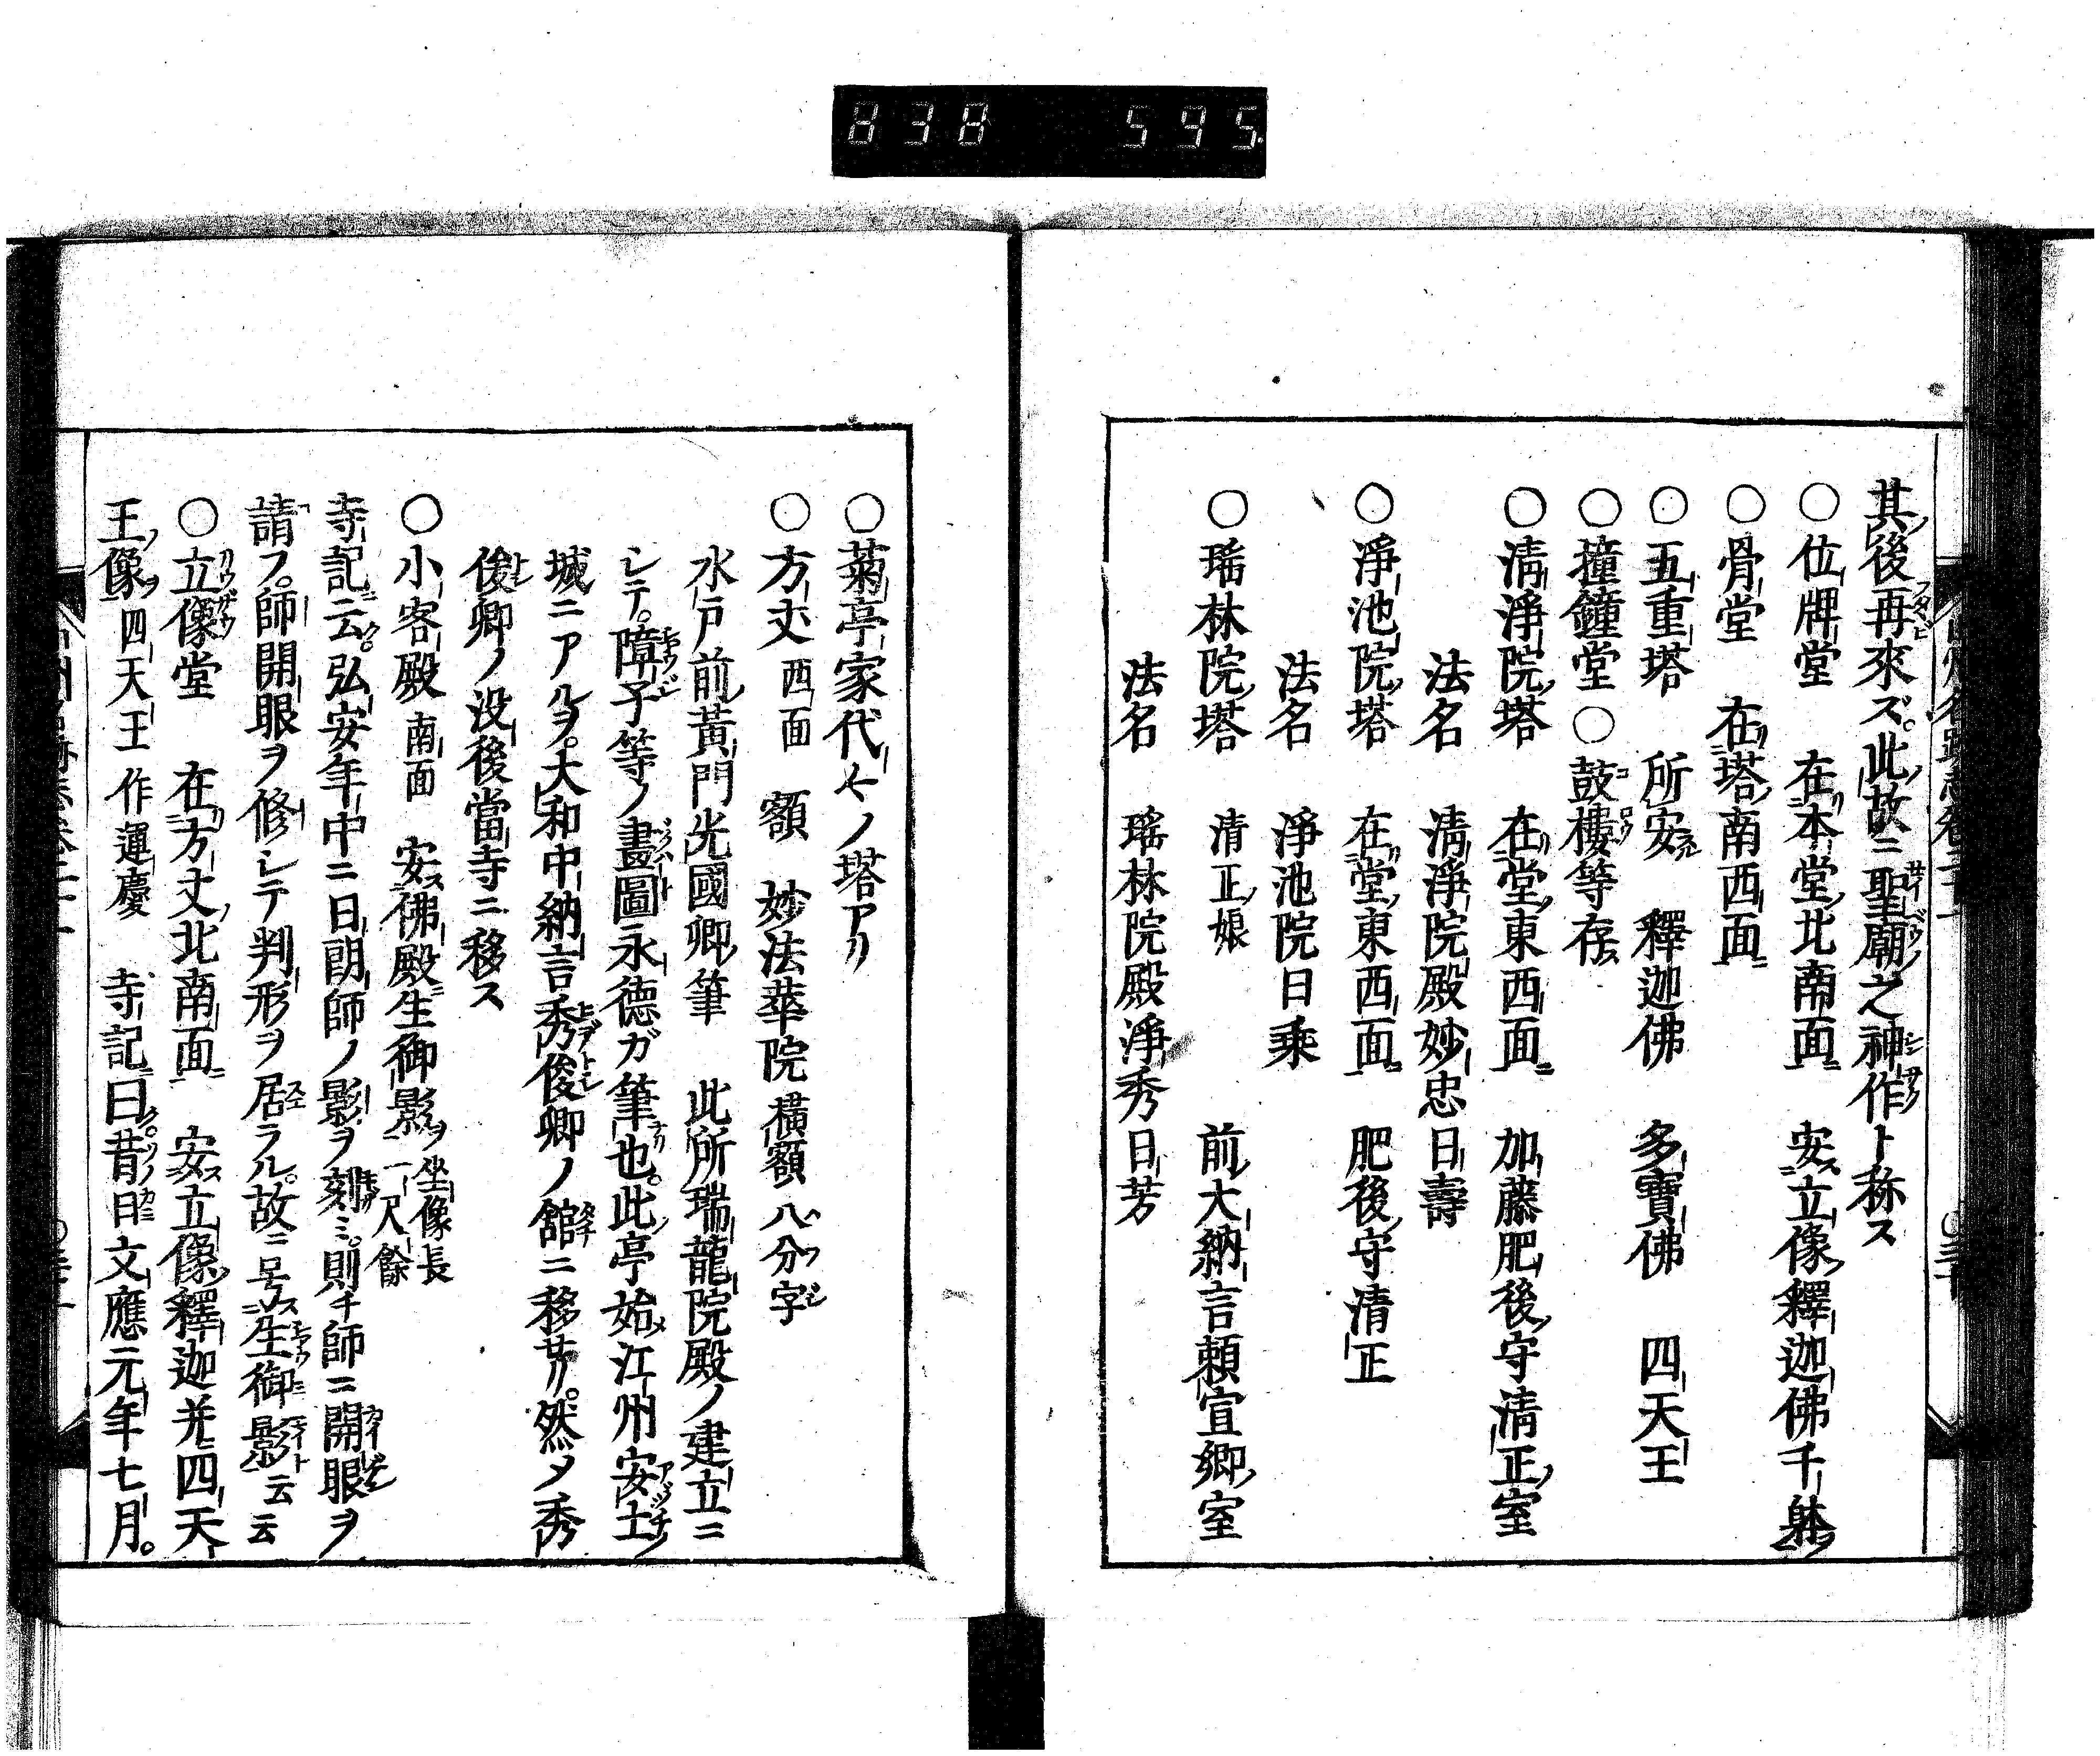 838 595
其後再來ズ。此故ニ聖廟之神作ト称ス
○位牌堂 在本堂北南面 安立像釋迦佛千躰
○骨堂 在塔南西面
○五重塔 所安 釋迦佛 多寶佛 四天王
○撞鐘堂 ○鼓樓等存
○清淨院塔 在堂東西面 加藤肥後守清正室
法名 清淨院殿妙忠日壽
○淨池院塔 在堂東西面 肥後守清正
法名 淨池院日乗
○瑤林院塔 清正娘 前大納言頼宣卿室
法名 瑤林院殿淨秀日芳
○菊亭家代々ノ塔アリ
○方丈 西面 額 妙法華院 横額 八分字
水戸前黃門光國卿筆 此所瑞龍院殿ノ建立ニ
シテ。障子等ノ畫圖永德ガ筆也。此亭始江州安土
城ニアルヲ。大和中納言秀俊卿ノ舘ニ移サル。然メ秀
俊卿ノ没後當寺ニ移ス
○小客殿 南面 安佛殿生御影ヲ 坐像長一尺餘
寺記云。弘安年中ニ日朗師ノ影ヲ刻ミ。則チ師ニ開眼ヲ
請フ。師開眼ヲ修シテ判形ヲ居ラル。故ニ号生御影ト云云
○立像堂 在方丈北南面 安立像釋迦并四天
王像 四天王作運慶 寺記曰。昔日文應元年七月。